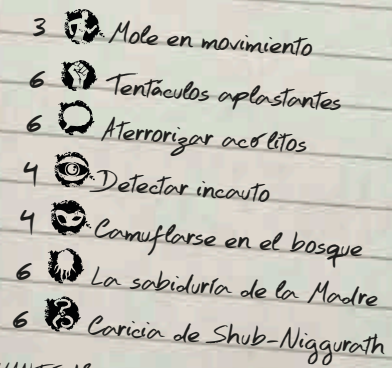 3 Mole en movimiento
6 Tentáculos aplastantes
6 Aterrorizar acólitos
4 Detectar incauto
4 Camuflarse en el bosque
6 La sabiduría de la Madre
6 Caricia de Shub-Niggurath